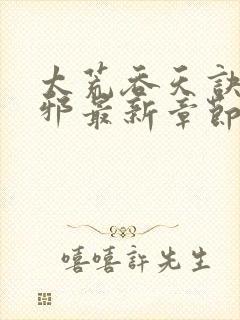 大荒吞天訣
邪最新章節
嘻嘻許先生